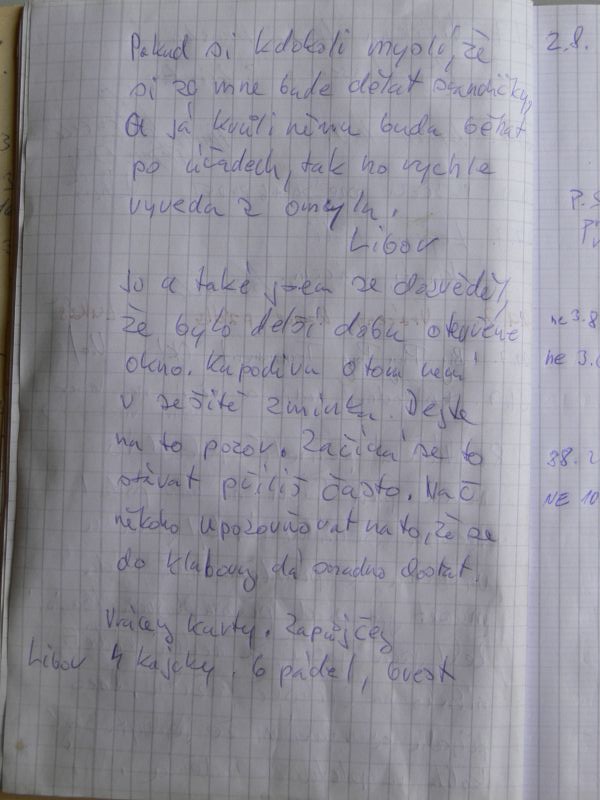 Pokud si kdokoli myslí, že
si ze mne bude dělat srandičky,
a já kvůli němu budu běhat
po úřadech, tak ho rychle
vyvedu z omylu.
Libor
Jo a také jsem se dozvěděl,
že bylo delší dobu otevřené
okno. Kupodivu o tom není
v sešitě zmínka. Dejte
na to pozor. Začíná se to
stávat příliš často. Nač
někoho upozorňovat na to, že se
do klubovny dá snadno dostat.
Vráceny karty. Zapůjčeny
Libor 4 kajaky. 6 pádel, 6 vest
2.8.
P.
ne 3.8
ne 3.
38.
NE 10